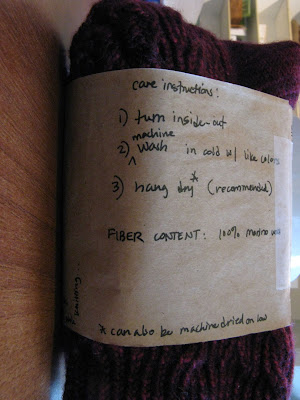 care instructions:
1) turn inside-out
machine
2) ^ wash in cold w/ like colors
3) hang dry* (recommended)
FIBER CONTENT: 100% merino
* can also be machine dried on low